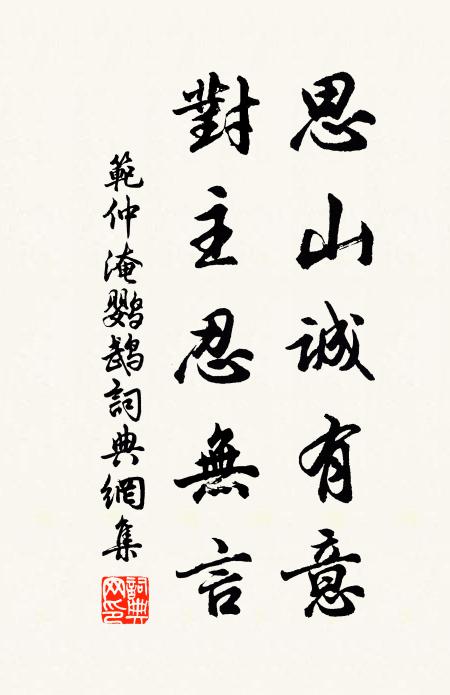 思山誠有意
對主忍無言
範仲淹鸚鵡詞典網集
詞典網印